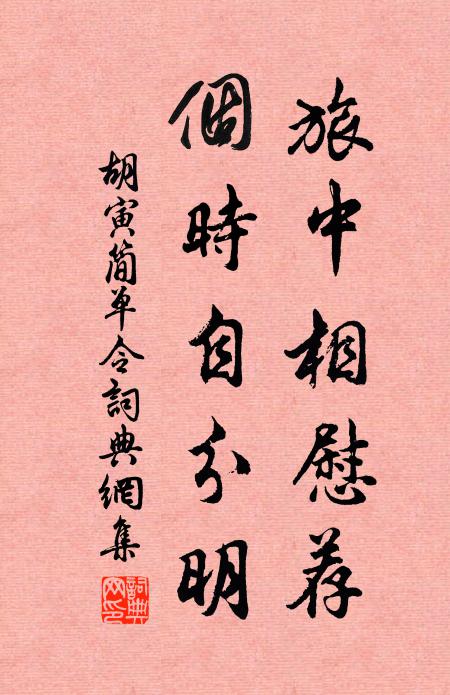 旅中相慰荐
個時自分明
胡寅簡单令詞典網集
詞典网印